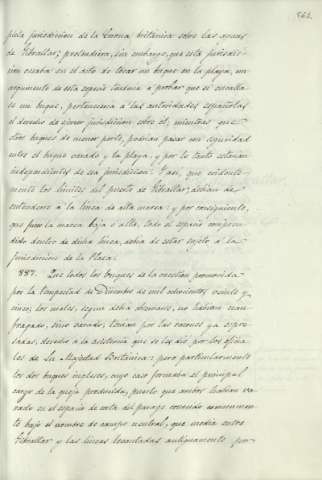 562.
plela jurisdiccion de la Corona británica sobre las aguas
de Gibraltar; pretendiera, sin embargo, que esta jurisdic-
cion cesaba en el acto de tocar un buque en la playa, un
argumento de esta especie tendería á probar que si encalla-
se un buque, pertenecería á las autoridades españolas
el derecho de ejercer jurisdiccion sobre él, mientras que
otros buques de menor porte, podrían pasar con seguridad
entre el buque varado y la playa, y por lo tanto estarian
independientes de esa jurisdiccion. Y así, que evidente-
mente los límites del puerto de Gibraltar, debian de
entenderse á la línea de alta marea: y por consiguiente,
que fuese la marea baja ó alta, todo el espacio compren-
dido dentro de dicha línea, debia de estar sujeto á la
jurisdiccion de la Plaza.
887. Que todos los buques de la cuestion promovida
por la tempestad de Diciembre de mil ochocientos veinte y
cinco, los cuales, segun debia observarse, no habian nau-
fragado, sino varado, tenian por las razones ya espre-
sadas, derecho á la asistencia que se les dió por los oficia-
les de Su Majestad Británica: pero particularmente
los dos buques ingleses, cuyo caso formaba el principal
cargo de la queja producida, puesto que ambos habian va-
rado en el espacio de costa del parage conocido comunmen-
te bajo el nombre de campo neutral, que media entre
Gibraltar y las líneas levantadas antiguamente por